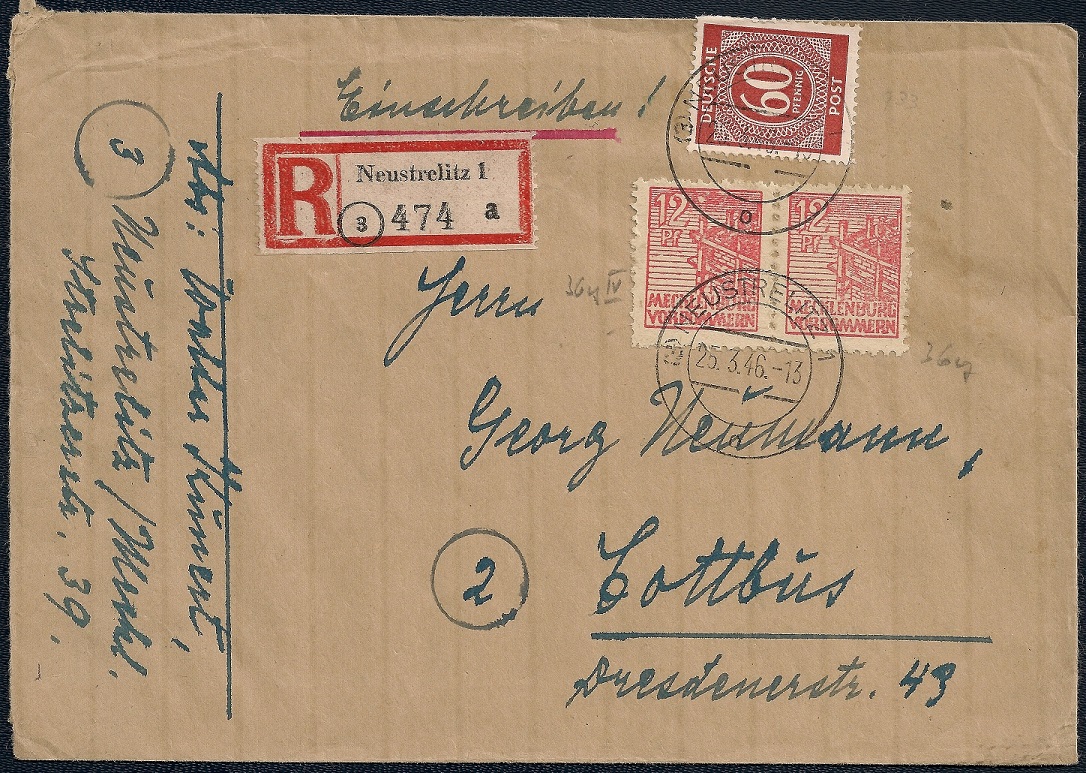 Einschreiben!
DEUTSCHE
60
PFENNIG
POST
R
Neustrelitz 1
3 474 a
12
Pf
MECKLENBURG
VORPOMMERN
12
Pf
MECKLENBURG
VORPOMMERN
NEUSTRELITZ 1
25.3.46.-13
36y IV
36y
Herrn
Georg Neumann,
2 Cottbus
Dresdenerstr. 43
Abs: Walter Künert,
3 Neustrelitz/Meckl.
Strelitzerstr. 39.